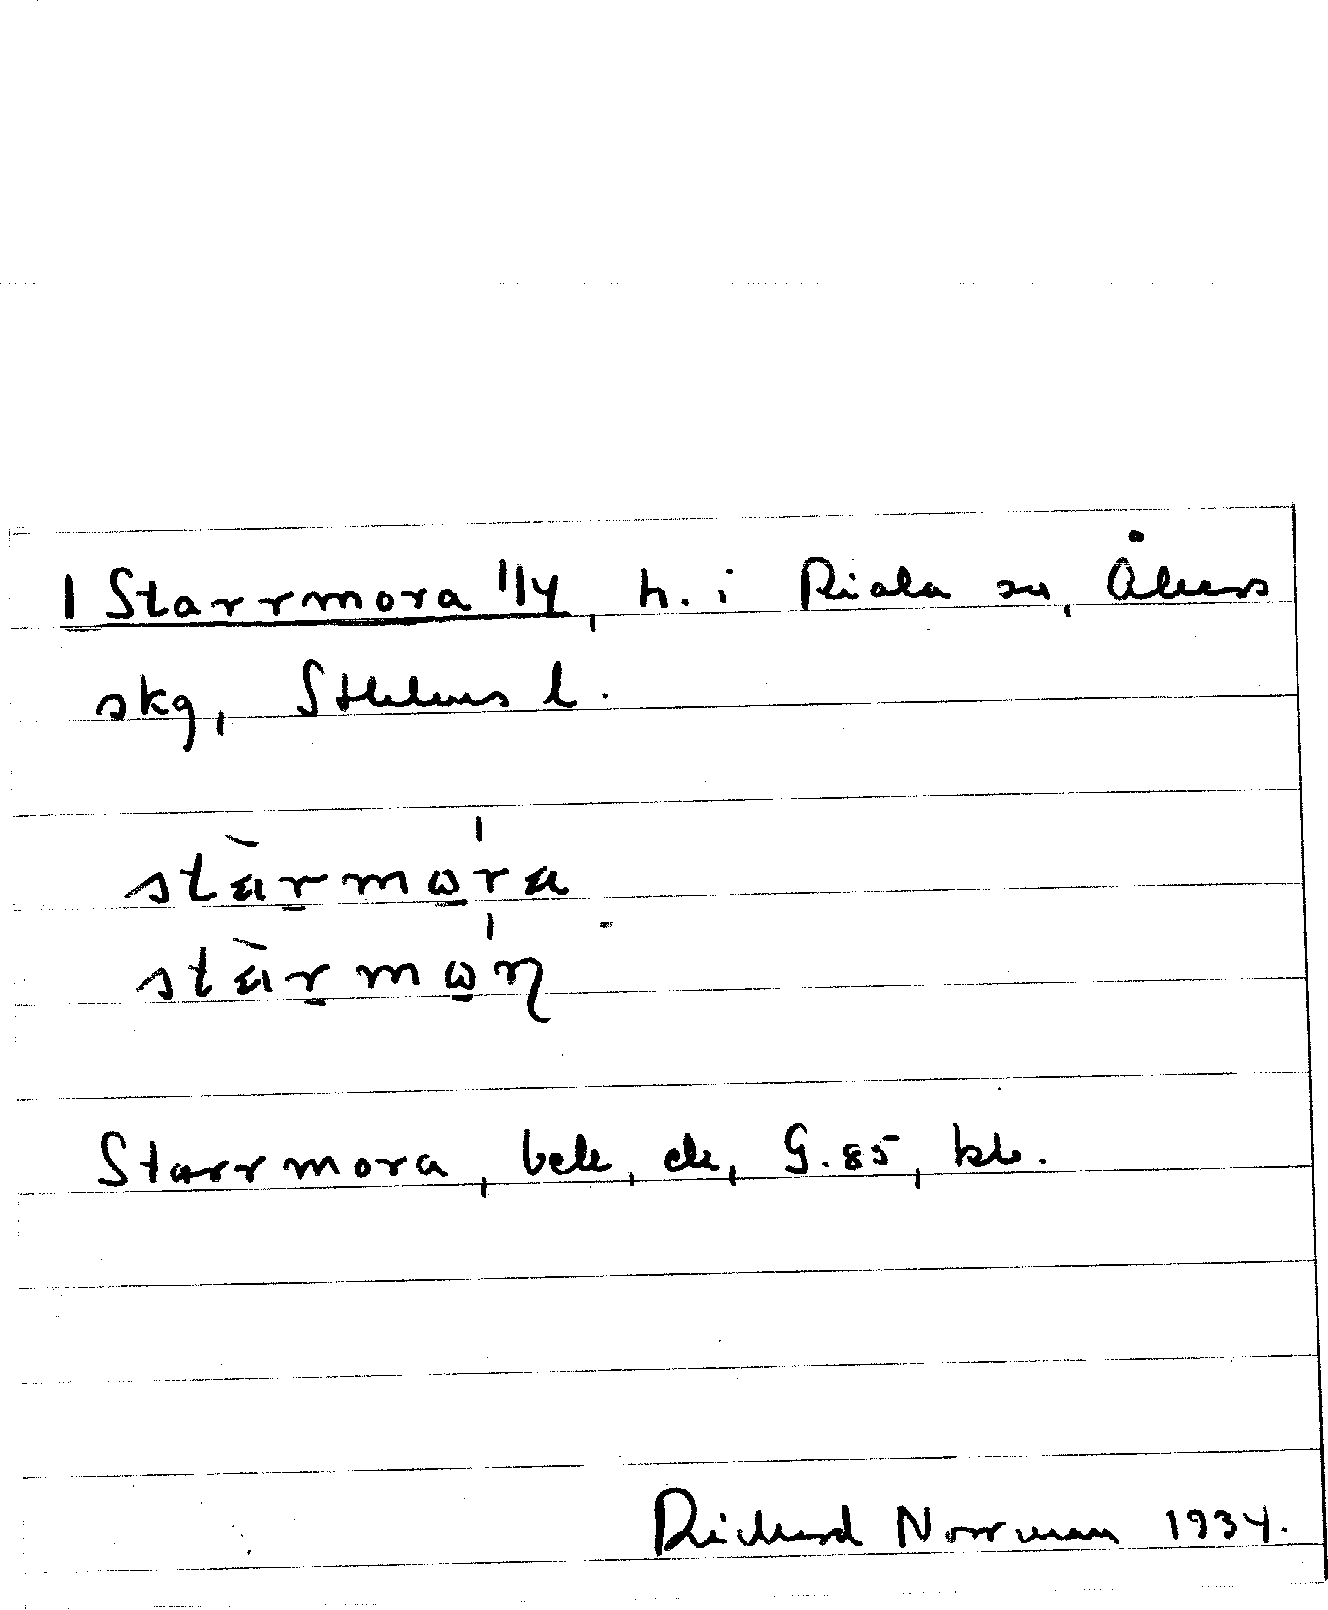 1 Starrmora 1/4, h. i Riala sn, Åkers
skg, Sthlms l.
stàrmώ̲ra
stàrmώ̲ɳ
Starrmora, bek, ek, G.85, kb.
Richard Norrman 1934.